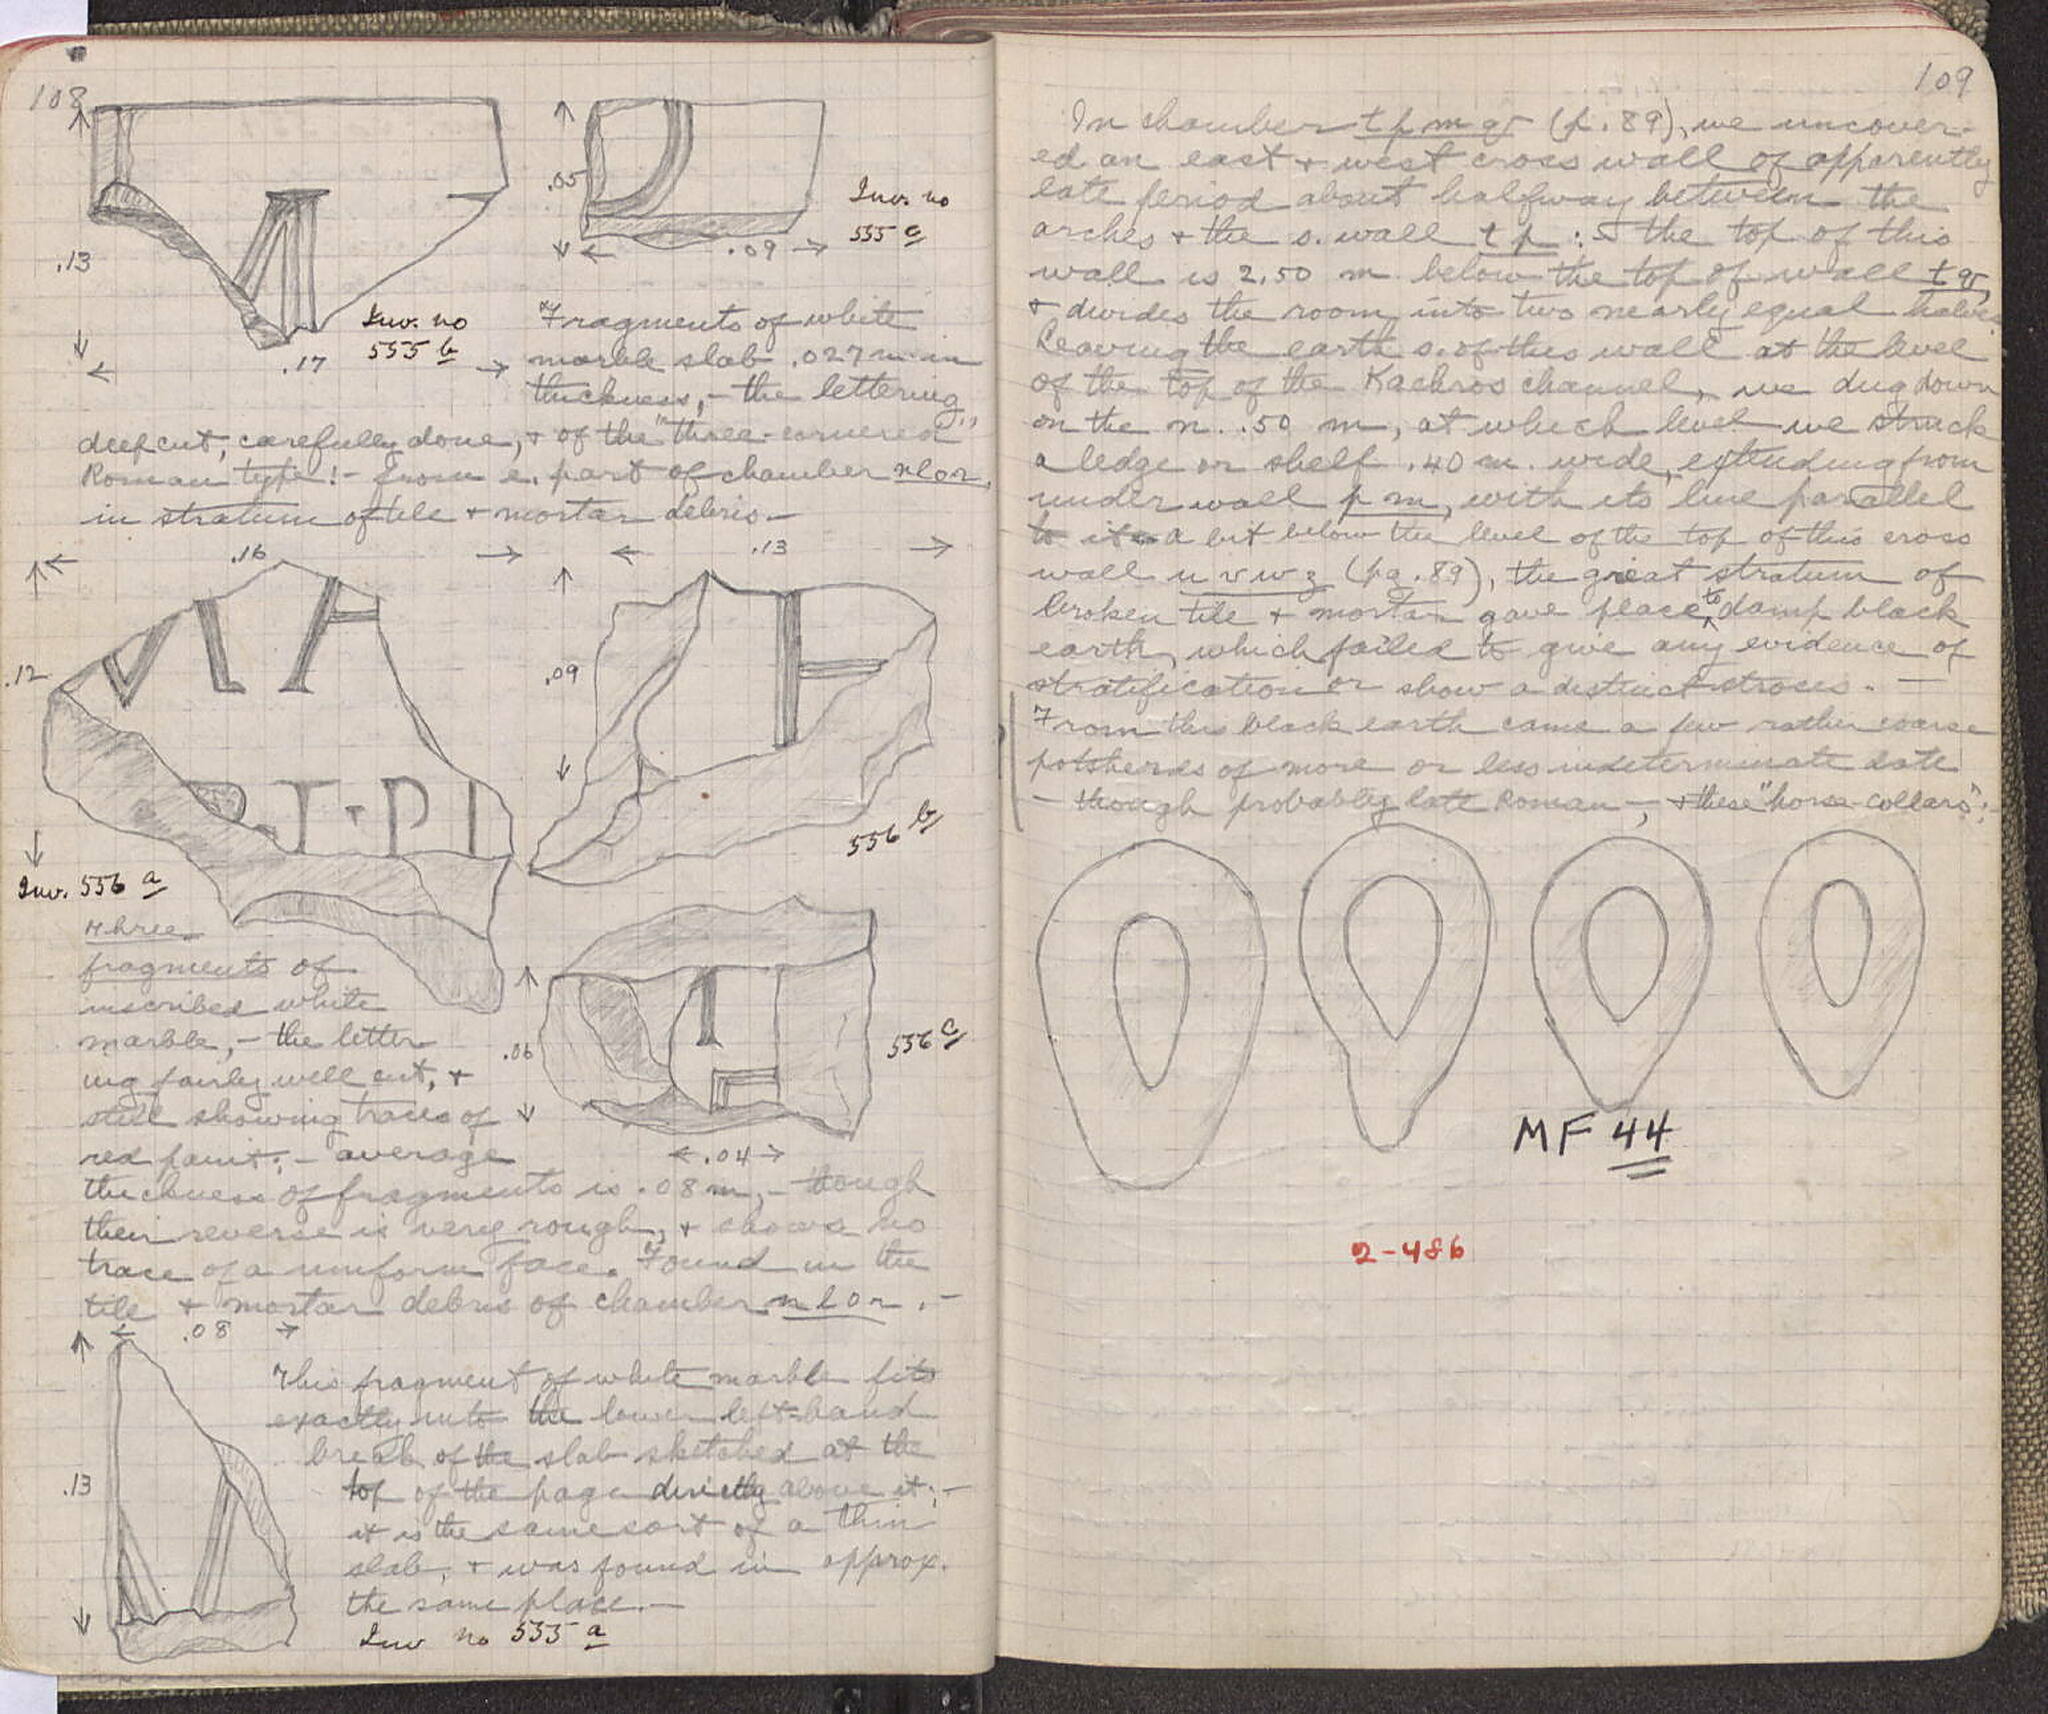 108
.13
.17
Inv. no
555 b
.05
.09
Inv. no
555 c
Fragments of white
marble slab .027 m in
thickness, – the lettering
deep cut, carefully done, + of the "three-cornered"
Roman type! – from e. part of chamber nlor,
in stratum of tile + mortar debris –
.16
.12
RT·PI
Inv. 556 a
.13
.09
556 b
Three
fragments of
inscribed white
marble, – the letter
ing fairly well cut, +
still showing traces of
red paint; – average
thickness of fragments is .08 m, – though
their reverse is very rough, + shows no
trace of a uniform face. Found in the
tile + mortar debris of chamber nlor. –
.06
.04
556 c
.08
.13
This fragment of white marble fits
exactly into the lower left-hand
break of the slab sketched at the
top of the page directly above it; –
it is the same sort of a thin
slab, + was found in approx.
the same place. –
Inv no 555 a
109
In chamber t p m q (p. 89), we uncover-
ed an east + west cross wall of apparently
late period about halfway between the
arches + the s. wall t p : – the top of this
wall is 2.50 m below the top of wall t q,
+ divides the room into two nearly equal halves
Leaving the earth s. of this wall at the level
of the top of the channel, we dug down
on the n. .50 m, at which level we struck
a ledge or shelf .40 m. wide, extending from
under wall p m, with its line parallel
to it – a bit below the level of the top of this cross
wall u v w z (pg. 89), the great stratum of
broken tile + mortar gave place to damp black
earth, which failed to give any evidence of
stratification or show a distinct stroses. –
From this black earth came a few rather coarse
potsherds of more or less indeterminate date
– though probably late Roman –, + these "horse-collars": –
MF 44
2-486